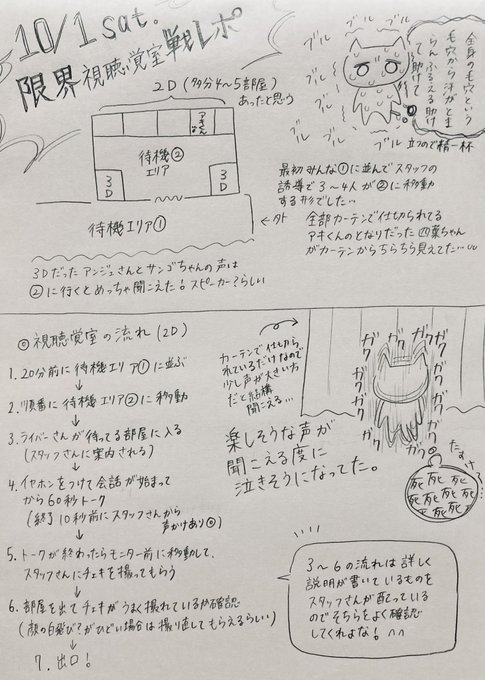 10/1 sat.
限界視聴覚室戦レポ
2D(多分4~5部屋)
あったと思う
アキくん
待機②
エリア
3D
3D
待機エリア①
←外
3Dだったアンジュさんとサンゴちゃんの声は
②に行くとめっちゃ聞こえた!スピーカー?らしい
ブル
ブル
ブル
ブル
ブル
ブル
ブル
ブル
全身の毛穴という
毛穴から汗がとま
らんふるえる助け
て助けて
立つので精一杯
最初みんな①に並んでスタッフの
誘導で3~4人が②に移動
する形でした…
全部カーテンで仕切られてる
アキくんのとなりだった四葉ちゃん
がカーテンからちらちら見えてた…
◎視聴覚室の流れ(2D)
1.20分前に待機エリア①に並ぶ
↓
2.順番に待機エリア②に移動
↓
3.ライバーさんが待ってる部屋に入る
(スタッフさんに案内される)
↓
4.イヤホンをつけて会話が始まって
から60秒トーク
(終了10秒前にスタッフさんから
声かけあり◎)
↓
5.トークが終わったらモニター前に移動して、
スタッフさんにチェキを撮ってもらう
↓
6.部屋を出てチェキがうまく撮れているか確認
(顔の白飛び?がひどい場合は撮り直してもらえるらしい)
↓
7.出口!
カーテンで仕切ら
れているだけなので
少し声が大きい方
だと結構
聞こえる…
ガク
ガク
ガク
ガク
ガク
ガク
ガク
ガク
楽しそうな声が
聞こえる度に
泣きそうになってた。
たすけて…
死死死
死死死死
死死死
3~6の流れは詳しく
説明が書いているものを
スタッフさんが配っている
のでそちらをよく確認
してくれよな!^^